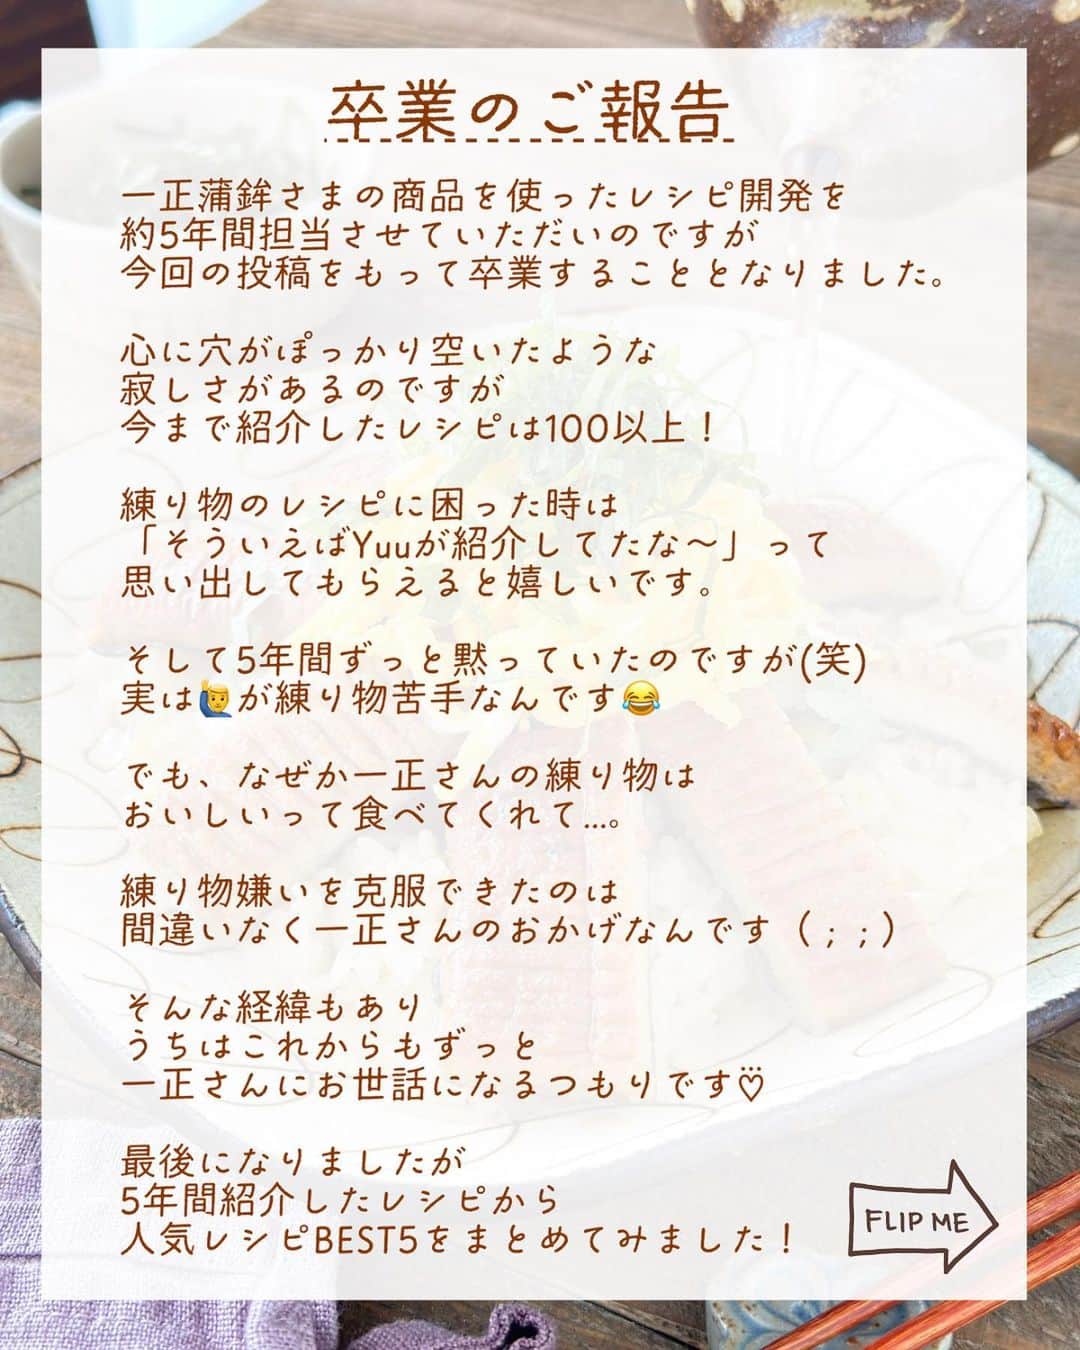 卒業のご報告
一正蒲鉾さまの商品を使ったレシピ開発を
約5年間担当させていただいのですが
今回の投稿をもって卒業することとなりました。
心に穴がぽっかり空いたような
寂しさがあるのですが
今まで紹介したレシピは100以上！
練り物のレシピに困った時は
「そういえばYuuが紹介してたな〜」って
思い出してもらえると嬉しいです。
そして5年間ずっと黙っていたのですが(笑)
実は🙋‍♂️が練り物苦手なんです😂
でも、なぜか一正さんの練り物は
おいしいって食べてくれて…。
練り物嫌いを克服できたのは
間違いなく一正さんのおかげなんです（；；）
そんな経緯もあり
うちはこれからもずっと
一正さんにお世話になるつもりです♡
最後になりましたが
5年間紹介したレシピから
人気レシピBEST5をまとめてみました！
FLIP ME